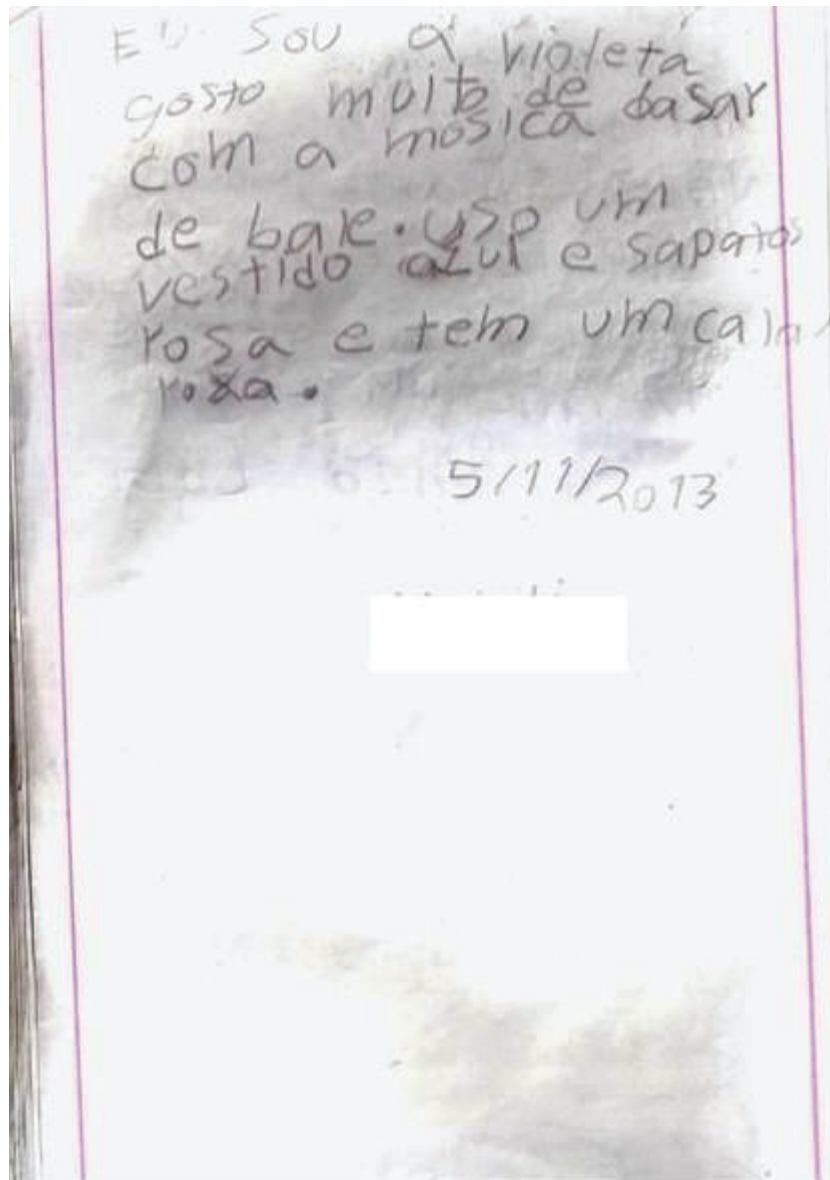 EU SOU a violeta
gosto muito de dasar
com a mosica
de bale. uso um
vestido azul e sapatos
rosa e tem um
roxa.
5/11/2013